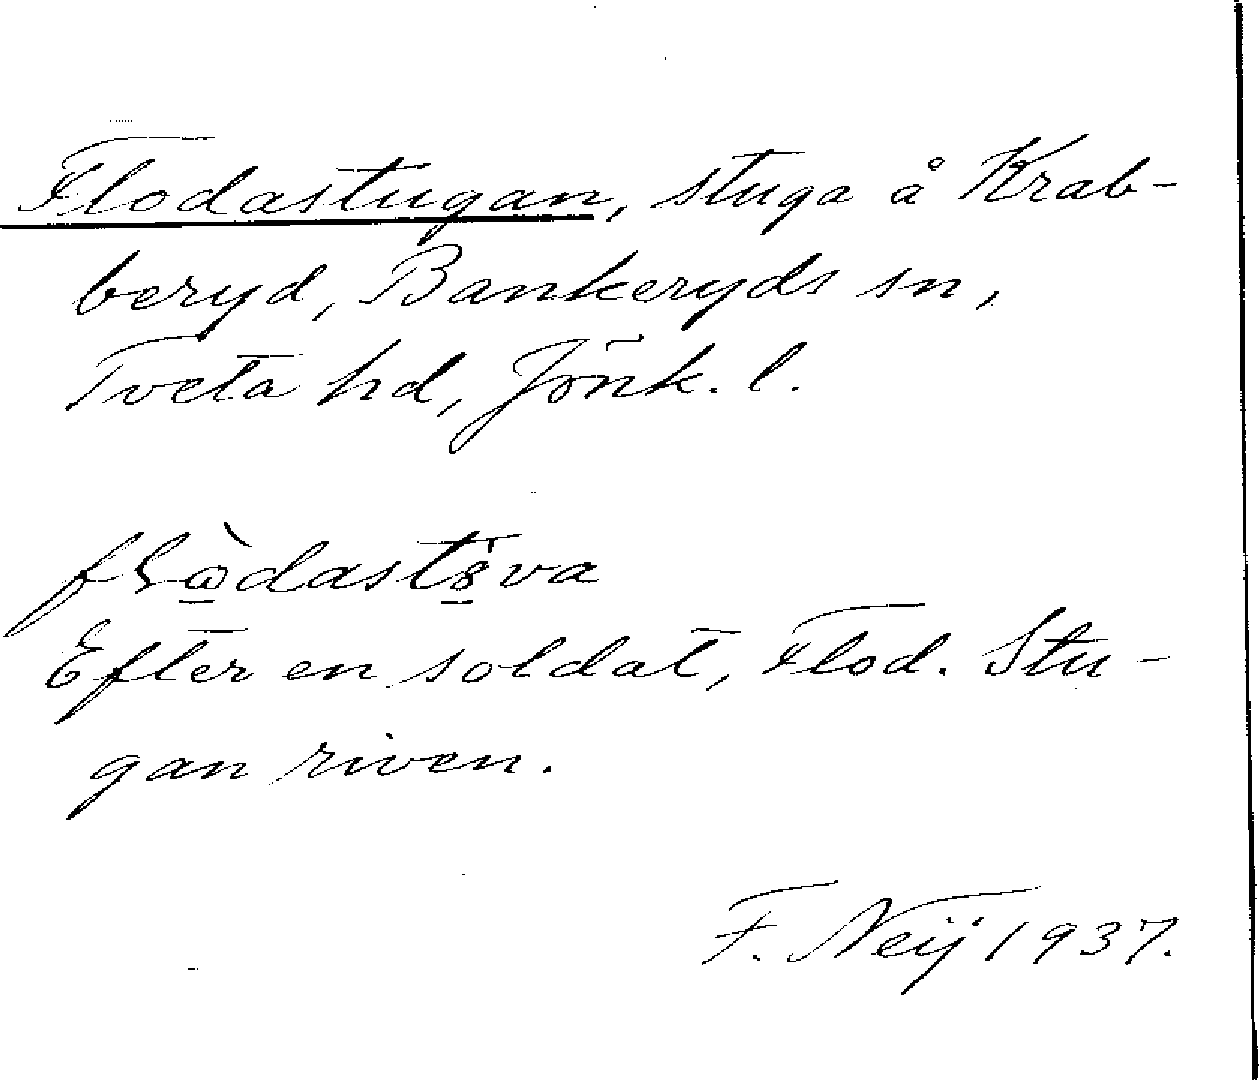 Flodastugan, stuga å Krab-
beryd, Bankeryds sn,
Tveta hd, Jönk. l.
Efter en soldat, Flod. Stu-
gan riven.
F. Neij 1937.